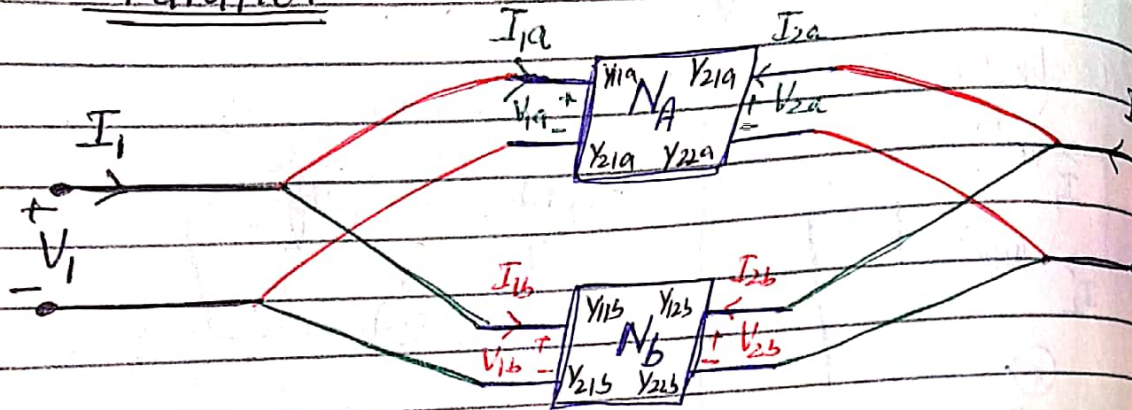 Parallel
I1a I2a
Y11a Y21a
V1a + - NA + - V2a
Y21a Y22a
I1
+
V1
-
I1b I2b
Y11b Y12b
V1b + - Nb + - V2b
Y21b Y22b